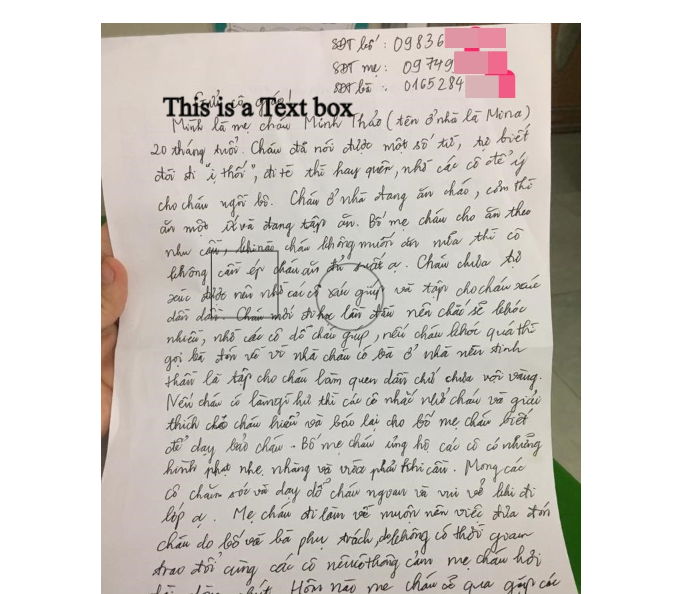 SĐT bố: 09836
SĐT mẹ: 09749
SĐT bà: 0165284
This is a Text box
Mình là mẹ cháu Minh Thảo (tên ở nhà là Mina)
20 tháng tuổi. Cháu đã nói được một số từ, tự biết
đòi đi "ị thối", đi tè thì hay quên, nhờ các cô để ý
cho cháu ngồi bô. Cháu ở nhà đang ăn cháo, cơm thì
ăn một ít và đang tập ăn. Bố mẹ cháu cho ăn theo
nhu cầu, khi nào cháu không muốn ăn nữa thì cô
không cần ép cháu ăn đủ suất ạ. Cháu chưa tự
xúc được nên nhờ các cô xúc giúp và tập cho cháu xúc
dần dần. Cháu mới đi học lần đầu nên chắc sẽ khóc
nhiều, nhờ các cô dỗ cháu giúp, nếu cháu khóc quá thì
gọi bà đón về vì nhà cháu có bà ở nhà nên tinh
thần là tập cho cháu làm quen dần chứ chưa vội vàng.
Nếu cháu có làm gì hư thì các cô nhắc nhở cháu và giải
thích cho cháu hiểu và báo lại cho bố mẹ cháu biết
để dạy bảo cháu. Bố mẹ cháu ủng hộ các cô có những
hình phạt nhẹ nhàng và vừa phải khi cần. Mong các
cô chăm sóc và dạy dỗ cháu ngoan và vui vẻ khi đi
lớp ạ. Mẹ cháu đi làm về muộn nên việc đưa đón
cháu do bố và bà phụ trách, do không có thời gian
trao đổi cùng các cô nên thông cảm mẹ cháu hơi
Hôm nào mẹ cháu sẽ qua gặp các